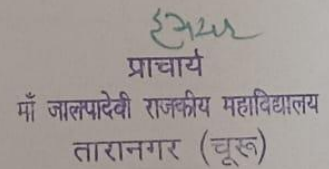 प्राचार्य
माँ जालपादेवी राजकीय महाविद्यालय
तारानगर (चूरू)